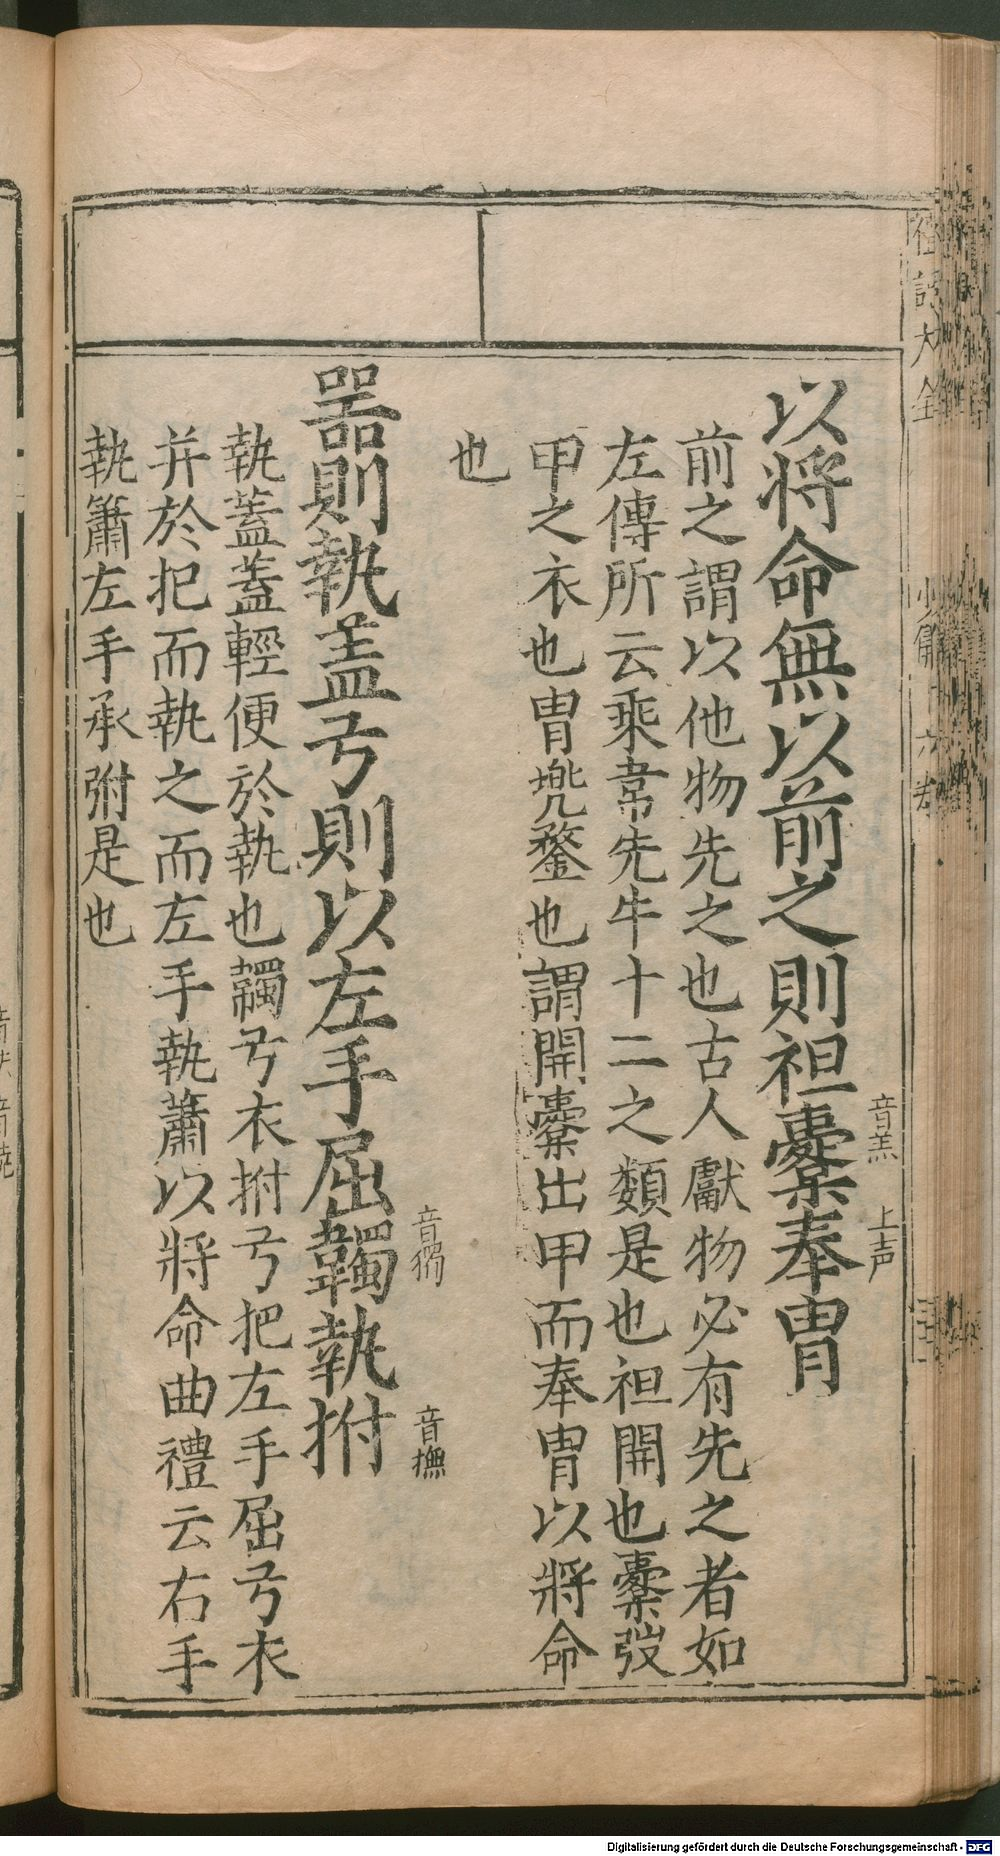 以將命無以前之則袒櫜奉冑
音羔
上声
前之謂以他物先之也古人獻物必有先之者如
左傳所云乘韋先牛十二之類是也袒開也櫜弢
甲之衣也冑兠鍪也謂開櫜出甲而奉冑以將命
也
噐則執盖弓則以左手屈韣執拊
音獨
音撫
執蓋蓋輕便於執也韣弓衣拊弓把左手屈弓衣
并於把而執之而左手執簫以將命曲禮云右手
執簫左手承弣是也
大全
Digitalisierung gefördert durch die Deutsche Forschungsgemeinschaft - DFG